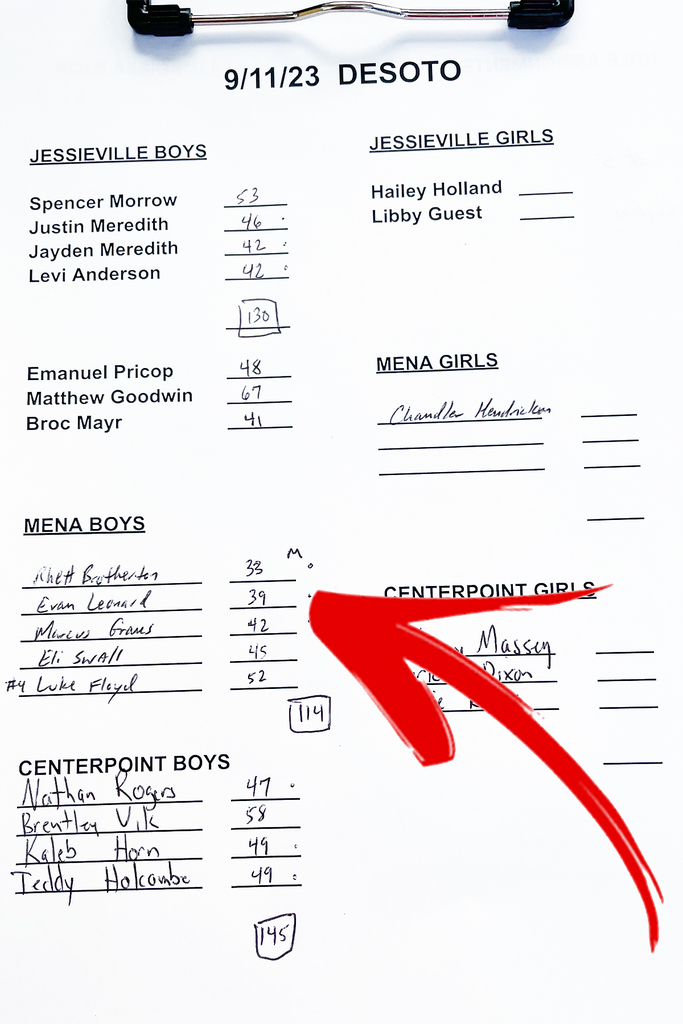 9/11/23 DESOTO
JESSIEVILLE BOYS
Spencer Morrow 53
Justin Meredith 46
Jayden Meredith 42
Levi Anderson 42
130
Emanuel Pricop 48
Matthew Goodwin 67
Broc Mayr 41
MENA BOYS
M
Rhett Brotherton 33
Evan Leonard 39
Marcus 42
Eli Swall 45
#4 Luke Floyd 52
114
CENTERPOINT BOYS
Nathan Rogers 47
Brentley Vik 58
Kaleb Horn 49
Teddy Holcombe 49
145
JESSIEVILLE GIRLS
Hailey Holland
Libby Guest
MENA GIRLS
Chandler Hendrickson
CENTERPOINT GIRLS
Massey
Dixon